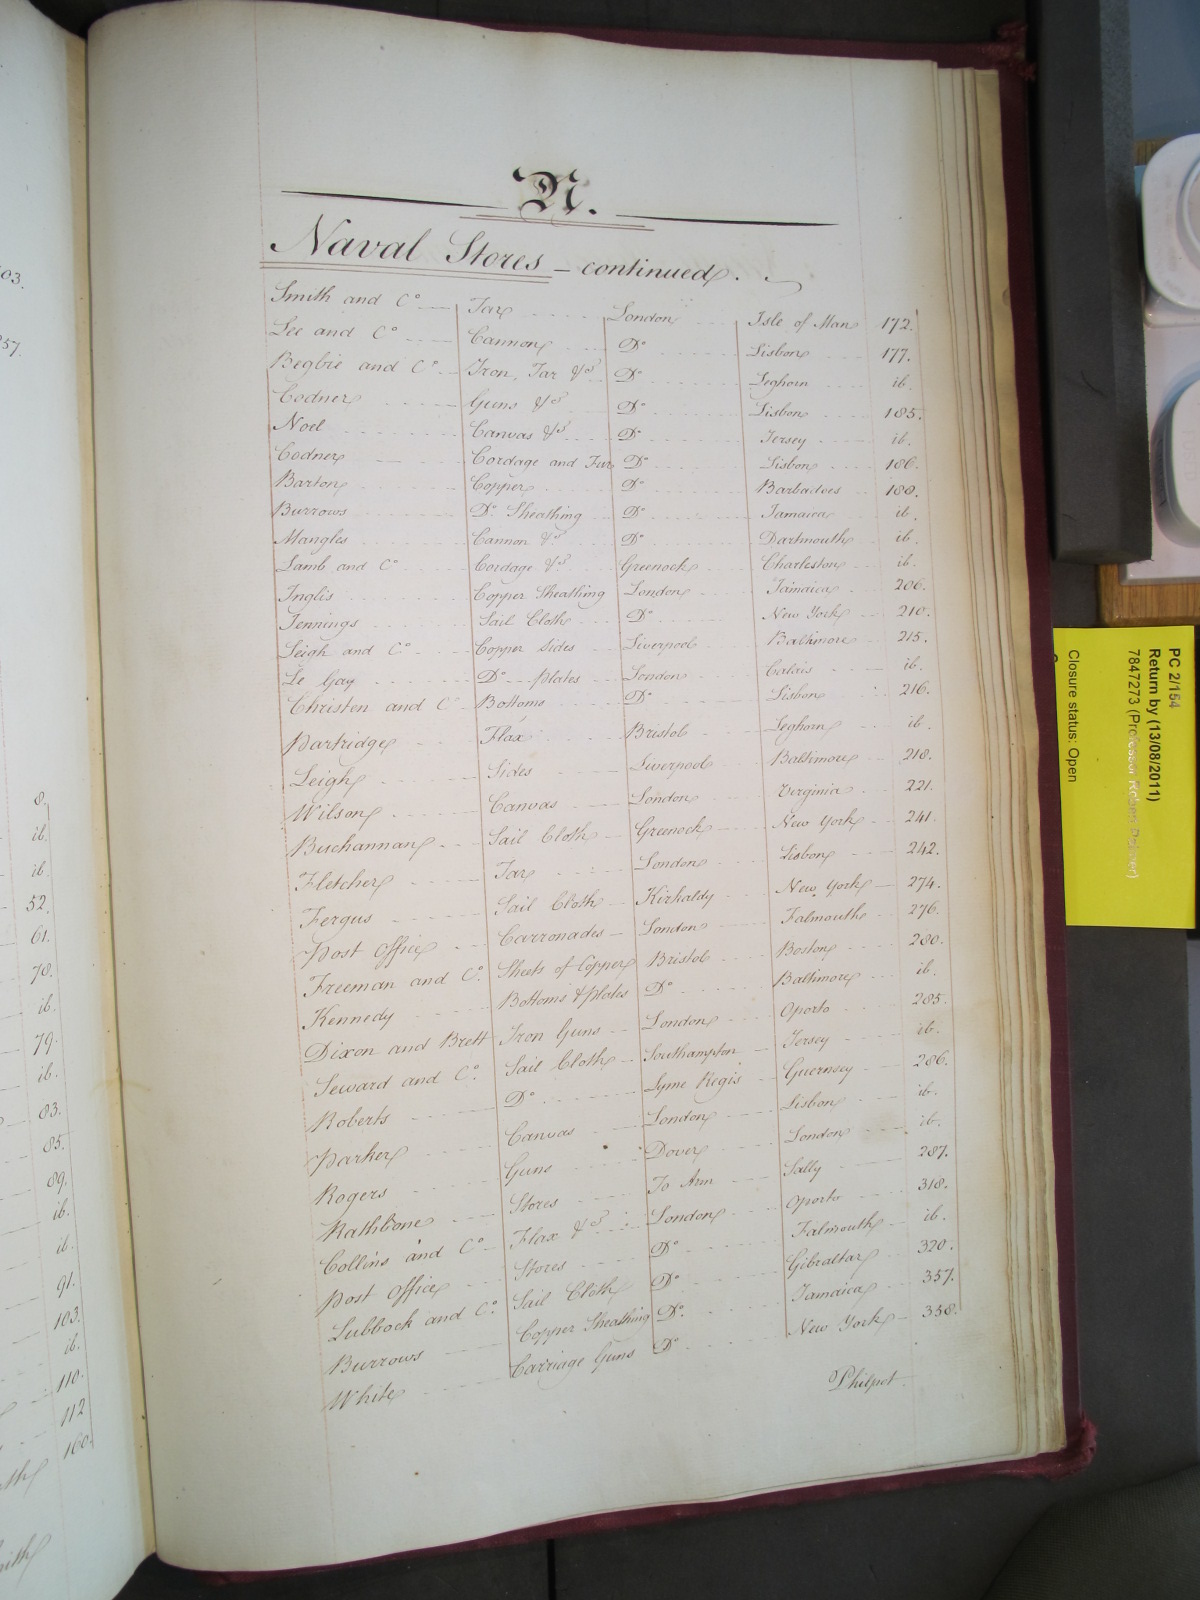 N.
Naval Stores – continued.
Smith and Co. Tar London Isle of Man 172.
Lee and Co. Cannon Do. Lisbon 177.
Begbie and Co. Iron, Tar &c. Do. Leghorn ib.
Codner Guns &c. Do. Lisbon 185.
Noel Canvas &c. Do. Jersey ib.
Codner Cordage and Tar Do. Lisbon 186.
Barton Copper Do. Barbadoes 188.
Burrows Do. Sheathing Do. Jamaica ib.
Mangles Cannon &c. Do. Dartmouth ib.
Lamb and Co. Cordage &c. Greenock Charleston ib.
Inglis Copper Sheathing London Jamaica 206.
Jennings Sail Cloth Do. New York 210.
Leigh and Co. Copper Sides Liverpool Baltimore 215.
Le Gay Do. Plates London Calais ib.
Christen and Co. Bottoms Do. Lisbon 216.
Partridge Flax Bristol Leghorn ib.
Leigh Sides Liverpool Baltimore 218.
Wilson Canvas London Virginia 221.
Buchannan Sail Cloth Greenock New York 241.
Fletcher Tar London Lisbon 242.
Fergus Sail Cloth Kirkaldy New York 274.
Post Office Carronades London Falmouth 276.
Freeman and Co. Sheets of Copper Bristol Boston 280.
Kennedy Bottoms & Plates Do. Baltimore ib.
Dixon and Brett Iron Guns London Oporto 285.
Seward and Co. Sail Cloth Southampton Jersey ib.
Roberts Do. Lyme Regis Guernsey 286.
Parker Canvas London Lisbon ib.
Rogers Guns Dover London ib.
Rathbone Stores To Arm Sally 287.
Collins and Co. Flax &c. London Oporto 318.
Post Office Stores Do. Falmouth ib.
Lubbock and Co. Sail Cloth Do. Gibraltar 320.
Burrows Copper Sheathing Do. Jamaica 357.
White Carriage Guns Do. New York 358.
Philpot
57.
8.
ib.
ib.
52.
61.
78.
ib.
79.
ib.
83.
85.
89.
ib.
ib.
91.
103.
ib.
110.
112
160.
PC 2/154
Return by (13/08/2011)
7847273 (Professor
Closure status: Open